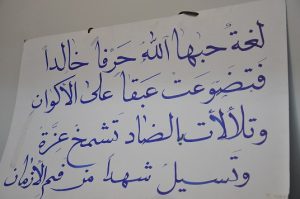 لغةٌ حبها اللهُ حَرْفاً خالداً
فتضوعت عبقاً على الأكوان
وتلألأت بالضاد تشمخ عزّةً
وتسيل شهداً من فم الأزمان